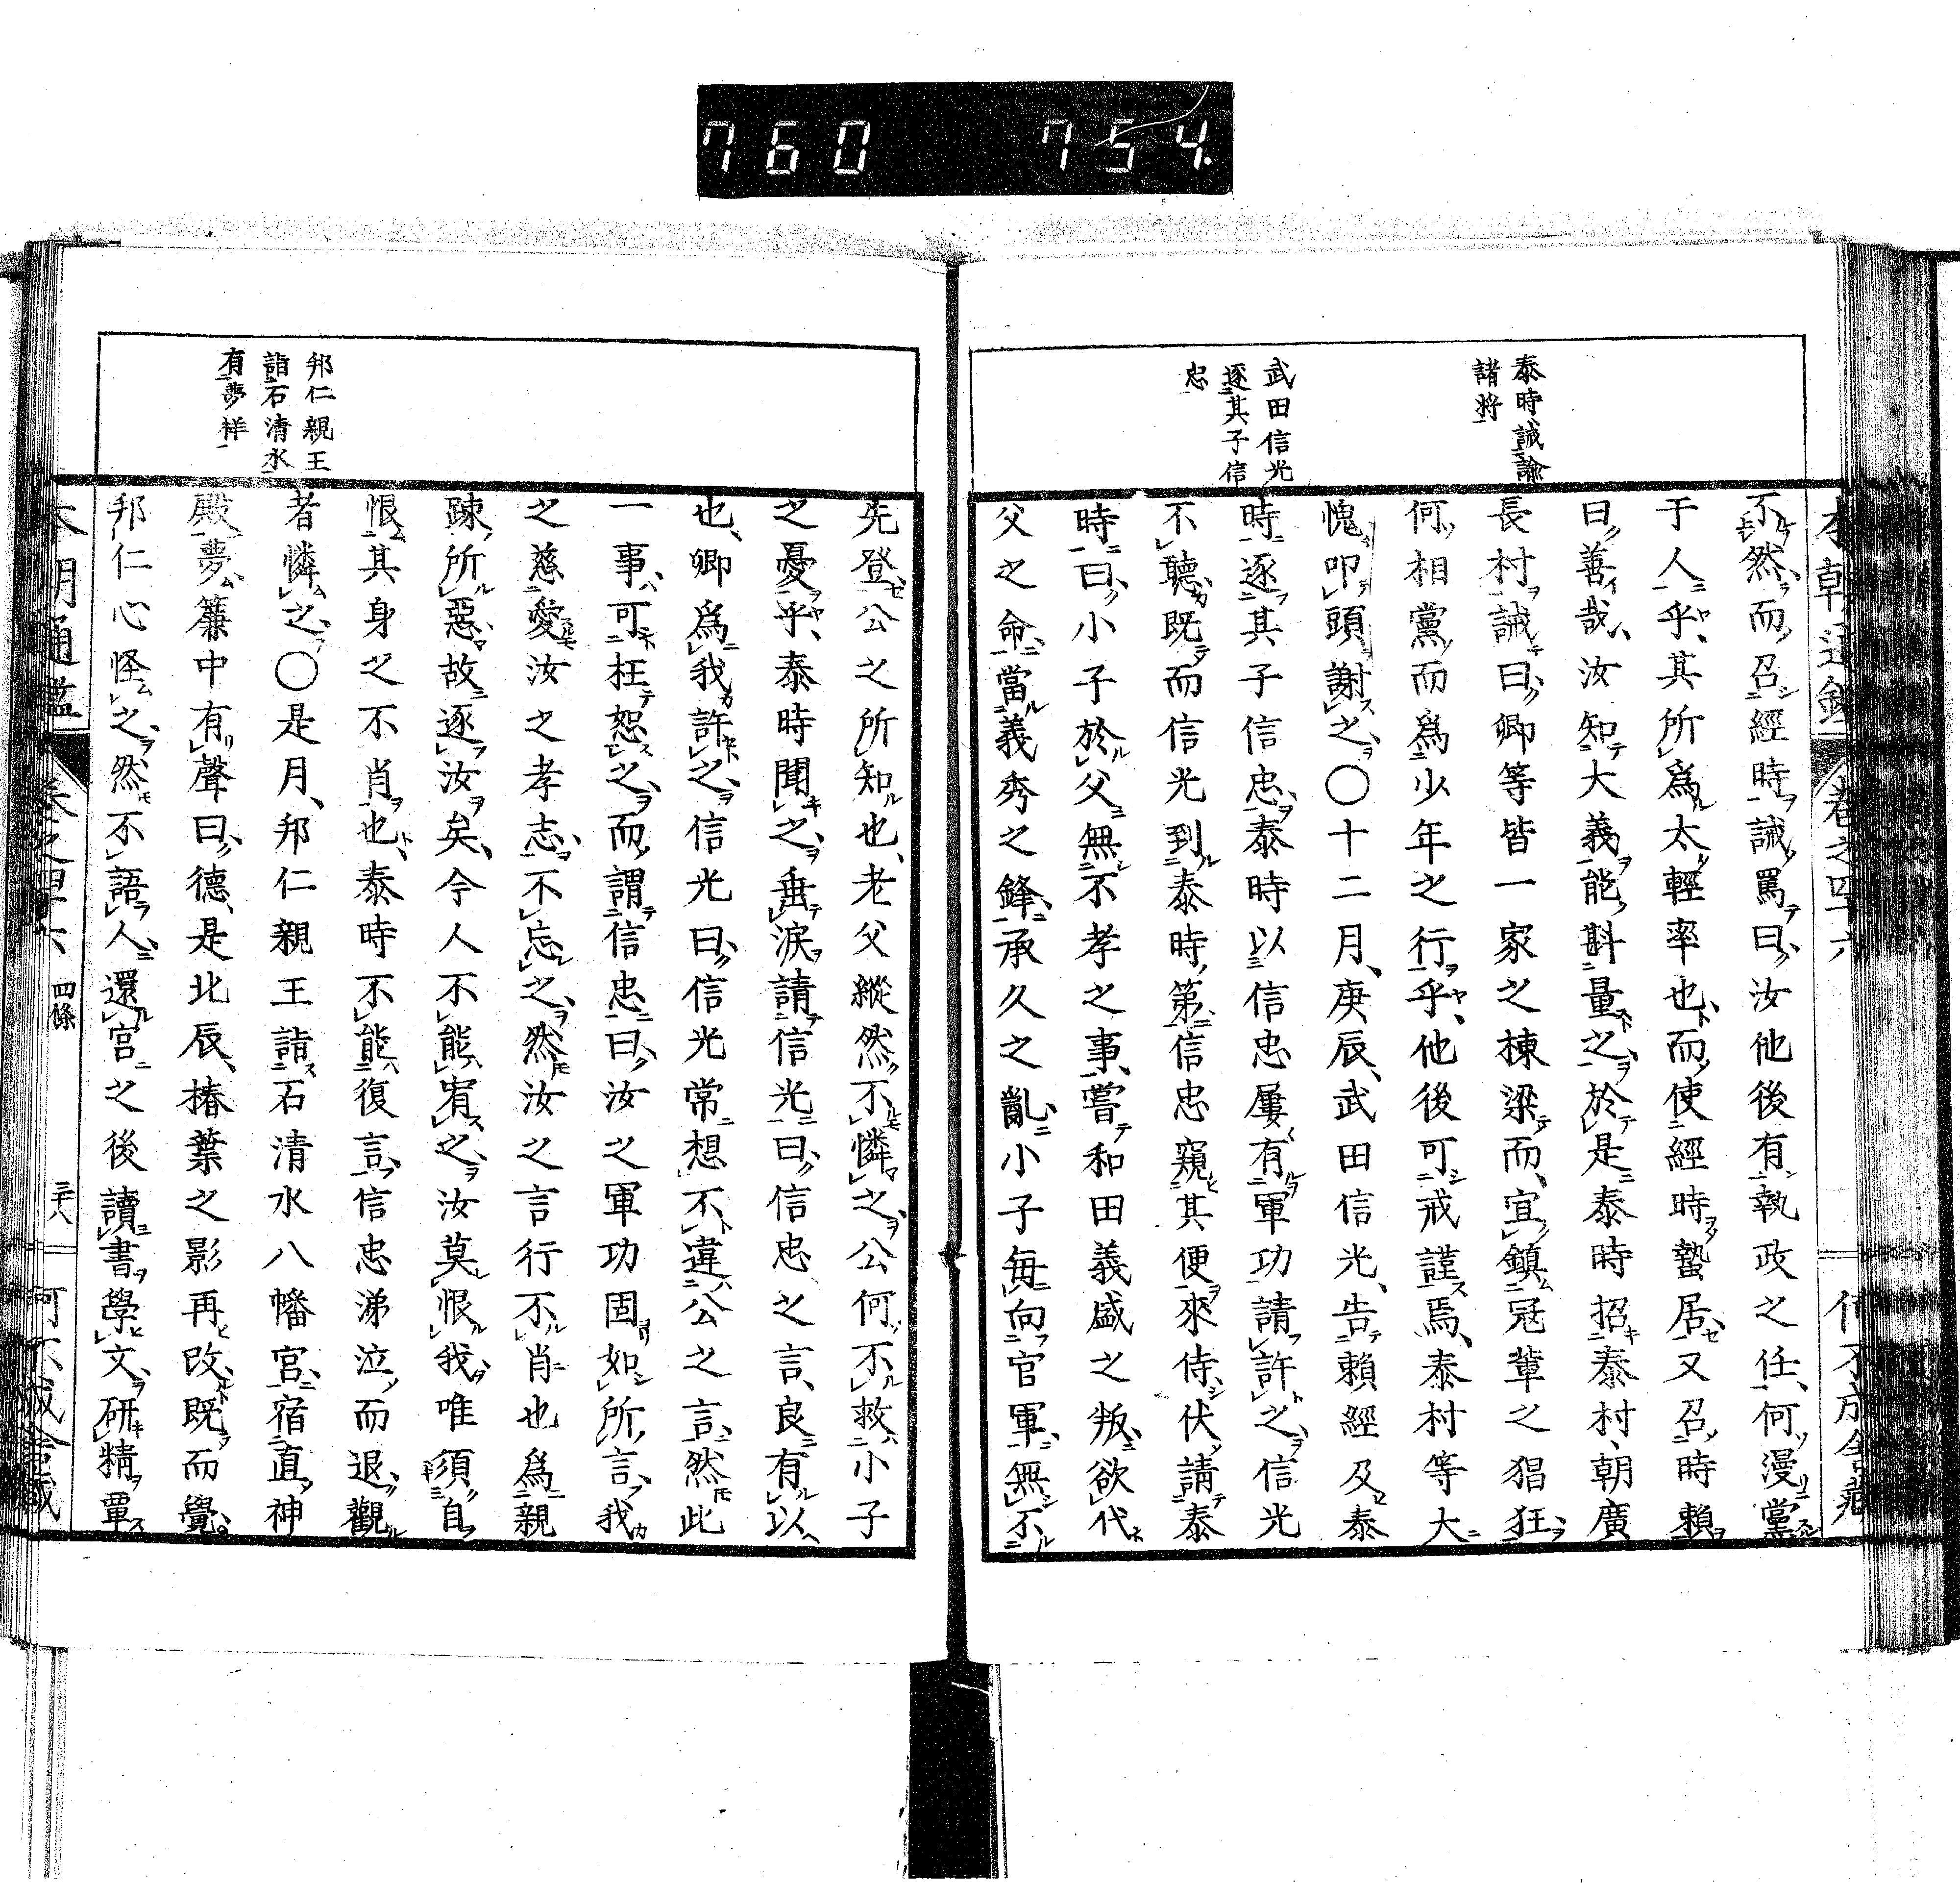 760 754.
本朝通鑑 卷之四十六 何不成舍藏
泰時誡諭
諸將
武田信光
逐其子信
忠
不然而召經時誡罵曰汝他後有執政之任何漫黨
于人乎其所爲太輕率也而使經時蟄居又召時賴
曰善哉汝知大義能斟量之於是泰時招泰村朝廣
長村誡曰卿等皆一家之棟梁而宜鎮冠輩之猖狂
何相黨而爲少年之行乎他後可戒謹焉泰村等大
愧叩頭謝之〇十二月庚辰武田信光告賴經及泰
時逐其子信忠泰時以信忠屢有軍功請許之信光
不聽既而信光到泰時第信忠窺其便來侍伏請泰
時曰小子於父無不孝之事嘗和田義盛之叛欲代
父之命當義秀之鋒承久之亂小子每向官軍無不
邦仁親王
詣石清水
有夢祥
先登公之所知也老父縱然不憐之公何不救小子
之憂乎泰時聞之垂淚請信光曰信忠之言良有以
也卿爲我許之信光曰信光常想不違公之言然此
一事可枉恕之而謂信忠曰汝之軍功固如所言我
之慈愛汝之孝志不忘之然汝之言行不肖也爲親
疎所惡故逐汝矣今人不能宥之汝莫恨我唯須自
恨其身之不肖也泰時不能復言信忠涕泣而退觀
者憐之〇是月邦仁親王詣石清水八幡宮宿直神
殿夢簾中有聲曰德是北辰椿葉之影再改既而覺
邦仁心怪之然不語人還宮之後讀書學文研精覃
本朝通鑑 卷之四十六 四條 三十八 何不成舍藏